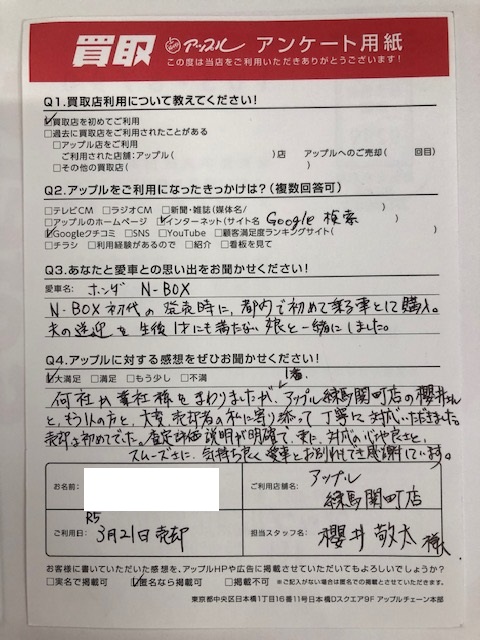 買取 アップル アンケート用紙
この度は当店をご利用いただきありがとうございます!
Q1.買取店利用について教えてください!
☑買取店を初めてご利用
□過去に買取店をご利用されたことがある
□アップル店をご利用
ご利用された店舗:アップル( )店 アップルへのご売却( 回目)
□その他の買取店( )
Q2.アップルをご利用になったきっかけは?(複数回答可)
□テレビCM □ラジオCM □新聞・雑誌(媒体名/ )
□アップルのホームページ ☑インターネット(サイト名 Google 検索 )
☑Googleクチコミ □SNS □YouTube □顧客満足度ランキングサイト( )
□チラシ □利用経験があるので □紹介 □看板を見て
Q3.あなたと愛車との思い出をお聞かせください!
愛車名: ホンダ N-BOX
N-BOX初代の発売時に、都内で初めて乗る車として購入。
夫の送迎を生後1才にも満たない娘と一緒にしました。
Q4.アップルに対する感想をぜひお聞かせください!
☑大満足 □満足 □もう少し □不満
1番、
何社か貴社様をまわりましたが、アップル練馬関町店の櫻井さん
と、もう1人の方と、大変、売却者の私に寄り添って丁寧に対応いただきました。
売却は初めてでした。査定評価説明が明確で、また、対応の心地良さと、
スムーズさに、気持ち良く愛車とお別れでき感謝しています。
お名前:
ご利用店舗名: アップル
練馬関町店
ご利用日: R5
3月21日 売却
担当スタッフ名: 櫻井 敬太 様
お客様に書いていただいた感想を、アップルHPや広告に掲載させていただいてもよろしいでしょうか?
□実名で掲載可 ☑匿名なら掲載可 □掲載不可 ※ご記入がない場合は匿名での掲載とさせていただきます。
東京都中央区日本橋1丁目16番11号日本橋Dスクエア9F アップルチェーン本部